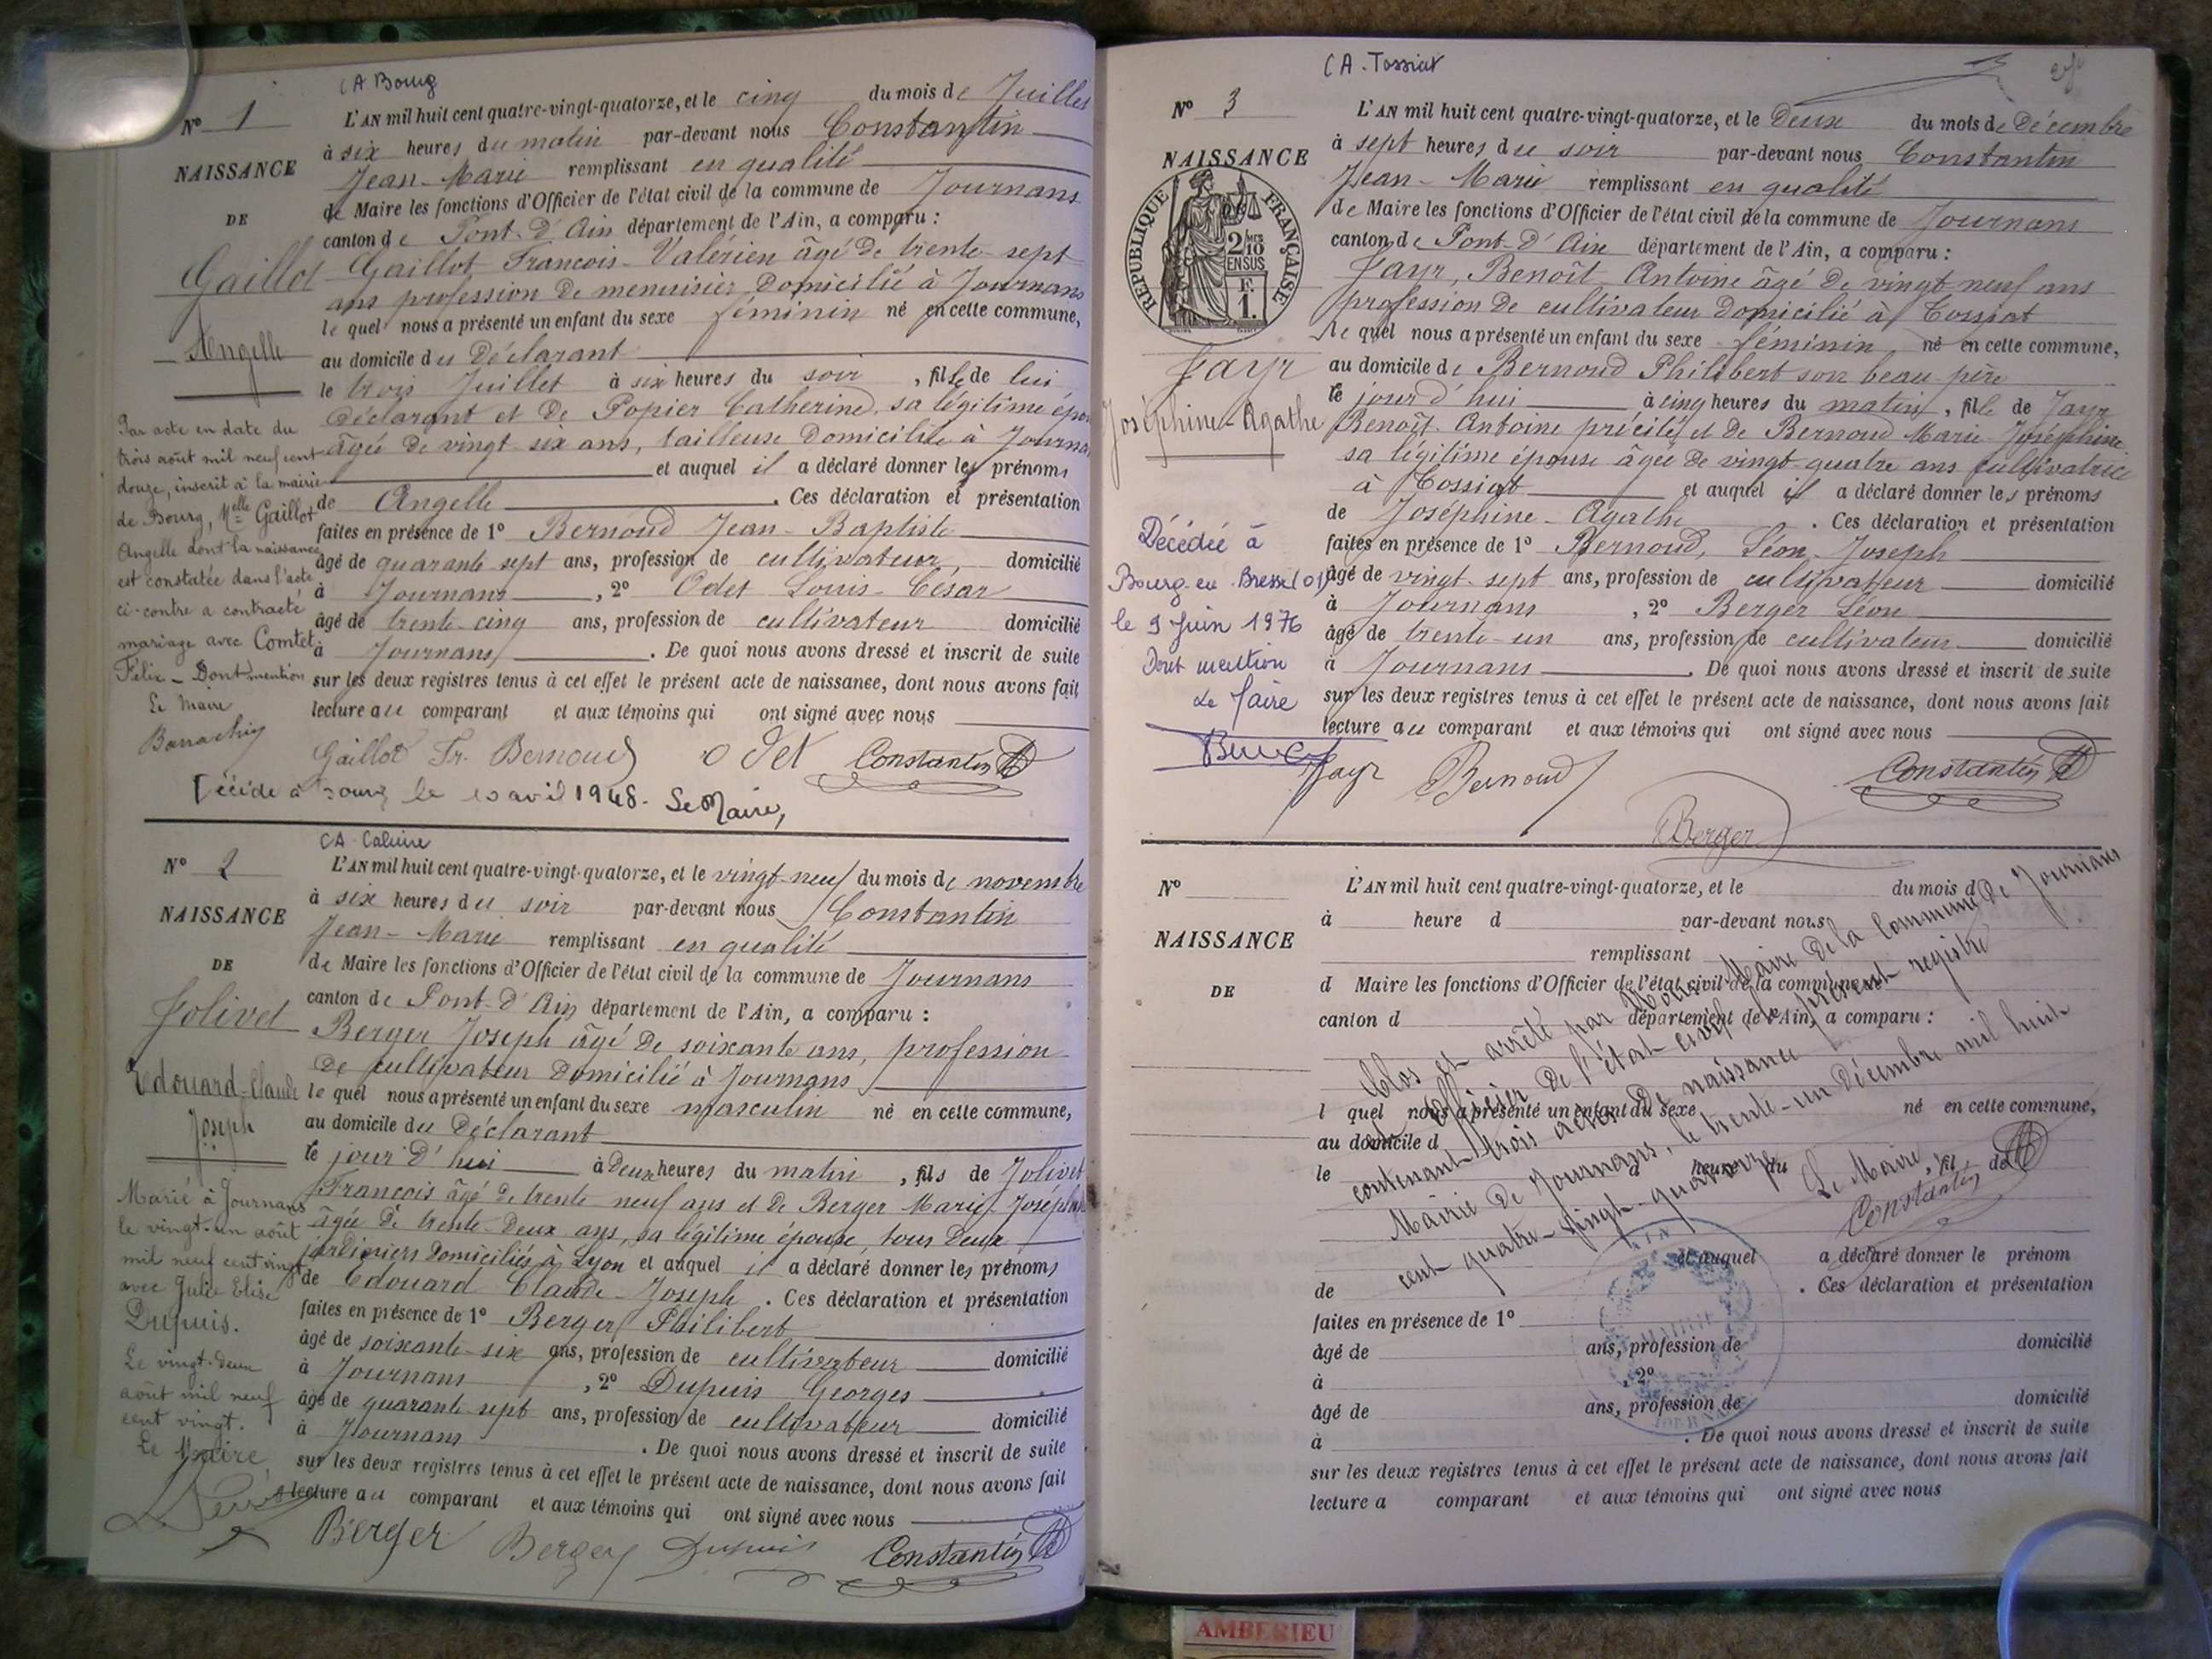 CA Bourg
N° 1
NAISSANCE
DE
Gaillot
Angelle
L'AN mil huit cent quatre-vingt-quatorze, et le cinq du mois de Juillet
à six heures du matin par-devant nous Constantin
Jean-Marie remplissant en qualité
de Maire les fonctions d'Officier de l'état civil de la commune de Journans
canton de Pont-d'Ain département de l'Ain, a comparu :
Gaillot François-Valérien âgé de trente-sept
ans profession de menuisier domicilié à Journans
le quel nous a présenté un enfant du sexe féminin né en cette commune,
au domicile du déclarant
le trois Juillet à six heures du soir, fille de lui
déclarant et de Popier Catherine, sa légitime épou
âgée de vingt six ans, tailleuse domiciliée à Journa
et auquel il a déclaré donner les prénoms
de Angelle. Ces déclaration et présentation
faites en présence de 1° Bernoud Jean-Baptiste
âgé de quarante sept ans, profession de cultivateur, domicilié
à Journans, 2° Odet Louis-César
âgé de trente-cinq ans, profession de cultivateur domicilié
à Journans. De quoi nous avons dressé et inscrit de suite
sur les deux registres tenus à cet effet le présent acte de naissance, dont nous avons fait
lecture au comparant et aux témoins qui ont signé avec nous
Gaillot Fr. Bernoud Odet Constantin
Par acte en date du
trois août mil neuf cent
douze, inscrit à la mairie
de Bourg, Melle Gaillot
Angelle dont la naissance
est constatée dans l'acte
ci-contre a contracté
mariage avec Comtet
Félix - Dont mention
Le Maire
Décidé à Bourg le 10 avril 1948. Le Maire,
CA Caluire
N° 2
NAISSANCE
DE
Jolivet
Edouard-Claude
Joseph
L'AN mil huit cent quatre-vingt-quatorze, et le vingt-neuf du mois de novembre
à six heures du soir par-devant nous Constantin
Jean-Marie remplissant en qualité
de Maire les fonctions d'Officier de l'état civil de la commune de Journans
canton de Pont-d'Ain département de l'Ain, a comparu :
Berger Joseph âgé de soixante ans, profession
de cultivateur domicilié à Journans
le quel nous a présenté un enfant du sexe masculin né en cette commune,
au domicile du déclarant
le jour d'hui à deux heures du matin, fils de Jolivet
François âgé de trente neuf ans et de Berger Marie-Joséphine
âgée de trente-deux ans, sa légitime épouse, tous deux
jardiniers domiciliés à Lyon et auquel il a déclaré donner les prénoms
de Edouard Claude-Joseph. Ces déclaration et présentation
faites en présence de 1° Berger Philibert
âgé de soixante-six ans, profession de cultivateur domicilié
à Journans, 2° Dupuis Georges
âgé de quarante sept ans, profession de cultivateur domicilié
à Journans. De quoi nous avons dressé et inscrit de suite
sur les deux registres tenus à cet effet le présent acte de naissance, dont nous avons fait
lecture au comparant et aux témoins qui ont signé avec nous
Berger Berger Dupuis Constantin
Marié à Journans
le vingt-un août
mil neuf cent vingt
avec Julie Elise
Dupuis.
Le vingt-deux
août mil neuf
cent vingt.
Le Maire
CA. Tossiat
N° 3
NAISSANCE
RÉPUBLIQUE FRANÇAISE
2/10 EN SUS
F. 1.
Jayr
Joséphine-Agathe
L'AN mil huit cent quatre-vingt-quatorze, et le deux du mois de décembre
à sept heures du soir par-devant nous Constantin
Jean-Marie remplissant en qualité
de Maire les fonctions d'Officier de l'état civil de la commune de Journans
canton de Pont-d'Ain département de l'Ain, a comparu :
Jayr, Benoît Antoine âgé de vingt neuf ans
profession de cultivateur domicilié à Tossiat
le quel nous a présenté un enfant du sexe féminin né en cette commune,
au domicile de Bernoud Philibert son beau père
le jour d'hui à cinq heures du matin, fille de Jayr
Benoît Antoine précité et de Bernoud Marie Joséphine
sa légitime épouse âgée de vingt-quatre ans cultivatrice
à Tossiat et auquel il a déclaré donner les prénoms
de Joséphine-Agathe. Ces déclaration et présentation
faites en présence de 1° Bernoud, Léon-Joseph
âgé de vingt-sept ans, profession de cultivateur domicilié
à Journans, 2° Berger Léon
âgé de trente-un ans, profession de cultivateur domicilié
à Journans. De quoi nous avons dressé et inscrit de suite
sur les deux registres tenus à cet effet le présent acte de naissance, dont nous avons fait
lecture au comparant et aux témoins qui ont signé avec nous
Jayr Bernoud Constantin
Berger
Décédée à
Bourg en Bresse (01)
le 9 Juin 1976
Dont mention
Le Maire
N°
NAISSANCE
DE
L'AN mil huit cent quatre-vingt-quatorze, et le du mois d
à heure d par-devant nous
remplissant
d Maire les fonctions d'Officier de l'état civil de la commune
canton d département de l'Ain, a comparu :
l quel nous a présenté un enfant du sexe né en cette commune,
au domicile d
le heure du, fil de
et auquel a déclaré donner le prénom
de. Ces déclaration et présentation
faites en présence de 1°
âgé de ans, profession de domicilié
à, 2°
âgé de ans, profession de domicilié
à. De quoi nous avons dressé et inscrit de suite
sur les deux registres tenus à cet effet le présent acte de naissance, dont nous avons fait
lecture a comparant et aux témoins qui ont signé avec nous
Clos et arrêté par Nous Maire de la Commune de Journans
Officier de l'état civil le présent registre
contenant trois actes de naissance
Mairie de Journans, le trente-un décembre mil huit
cent quatre-vingt-quatorze
Le Maire,
Constantin
AIN
MAIRIE
JOURNANS
AMBERIEU